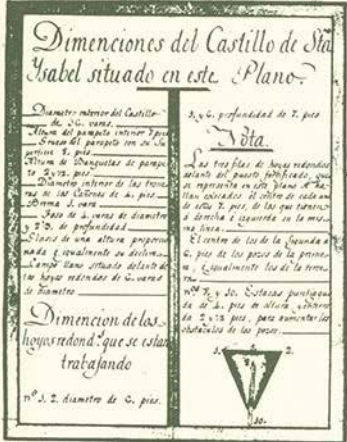 Dimenciones del Castillo de Sta
Ysabel situado en este Plano.
Diametro interior del Castillo
de 36. varas.
Altura del parapeto interior 7 pies
Grueso del parapeto con su Su
perficie 8. pies
Altura de Banquetas de parape
to 2 y 1/2. pies
Diametro interior de las trone
ras de los Cañones de 4. pies
Berma 1. vara
Foso de 4. varas de diametro
y de profundidad
Glasis de una altura proporcio
nada è igualmente su declivio
Campo llano situado delante de
los hoyos redondos de 6. varas
de diametro
Dimencion de los
hoyos redond.s que se estan
trabajando
nº 1. 2. diametro de 6. pies.
3. y 6. profundidad de 7. pies
Nota.
Las tres filas de hoyos redondos
delante del puesto fortificado, que
se representa en este plano se ha
llan enlazados el centro de cada uno
de estos pies, de los que tienen
á derecha è izquierda en la mis
ma linea.
El centro de los de la segunda a
6. pies de los pozos de la prime
ra, igualmente los de la terce
ra
nos 9. y 10. Estacas puntiagu
das de 4. pies de altura
2 y 1/2 pies, para aumentar los
obstaculos de los pozos.
1. 2.
10.